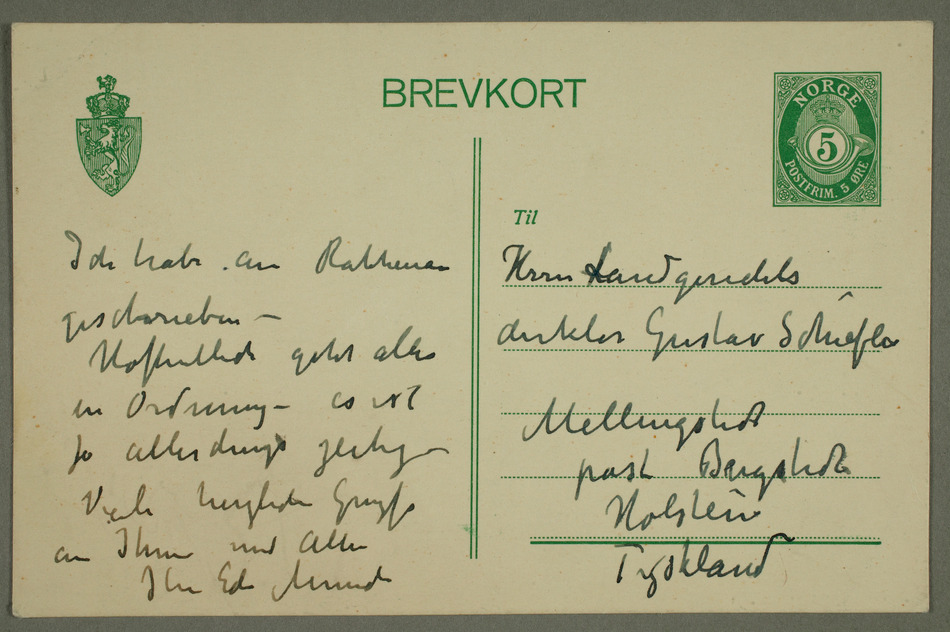 BREVKORT
NORGE
5
POSTFRIM. 5 ØRE
Til
Ich habe an Rathenau
geschrieben –
Hoffentlich geht alles
in Ordnung – es ist
ja allerdings
Viele herzliche Grüße
an Ihnen und Allen
Ihr Edv Munch
Herrn Landgerichts
direktor Gustav Schiefler
Mellingstedt
post Bergstedt
Holstein
Tyskland